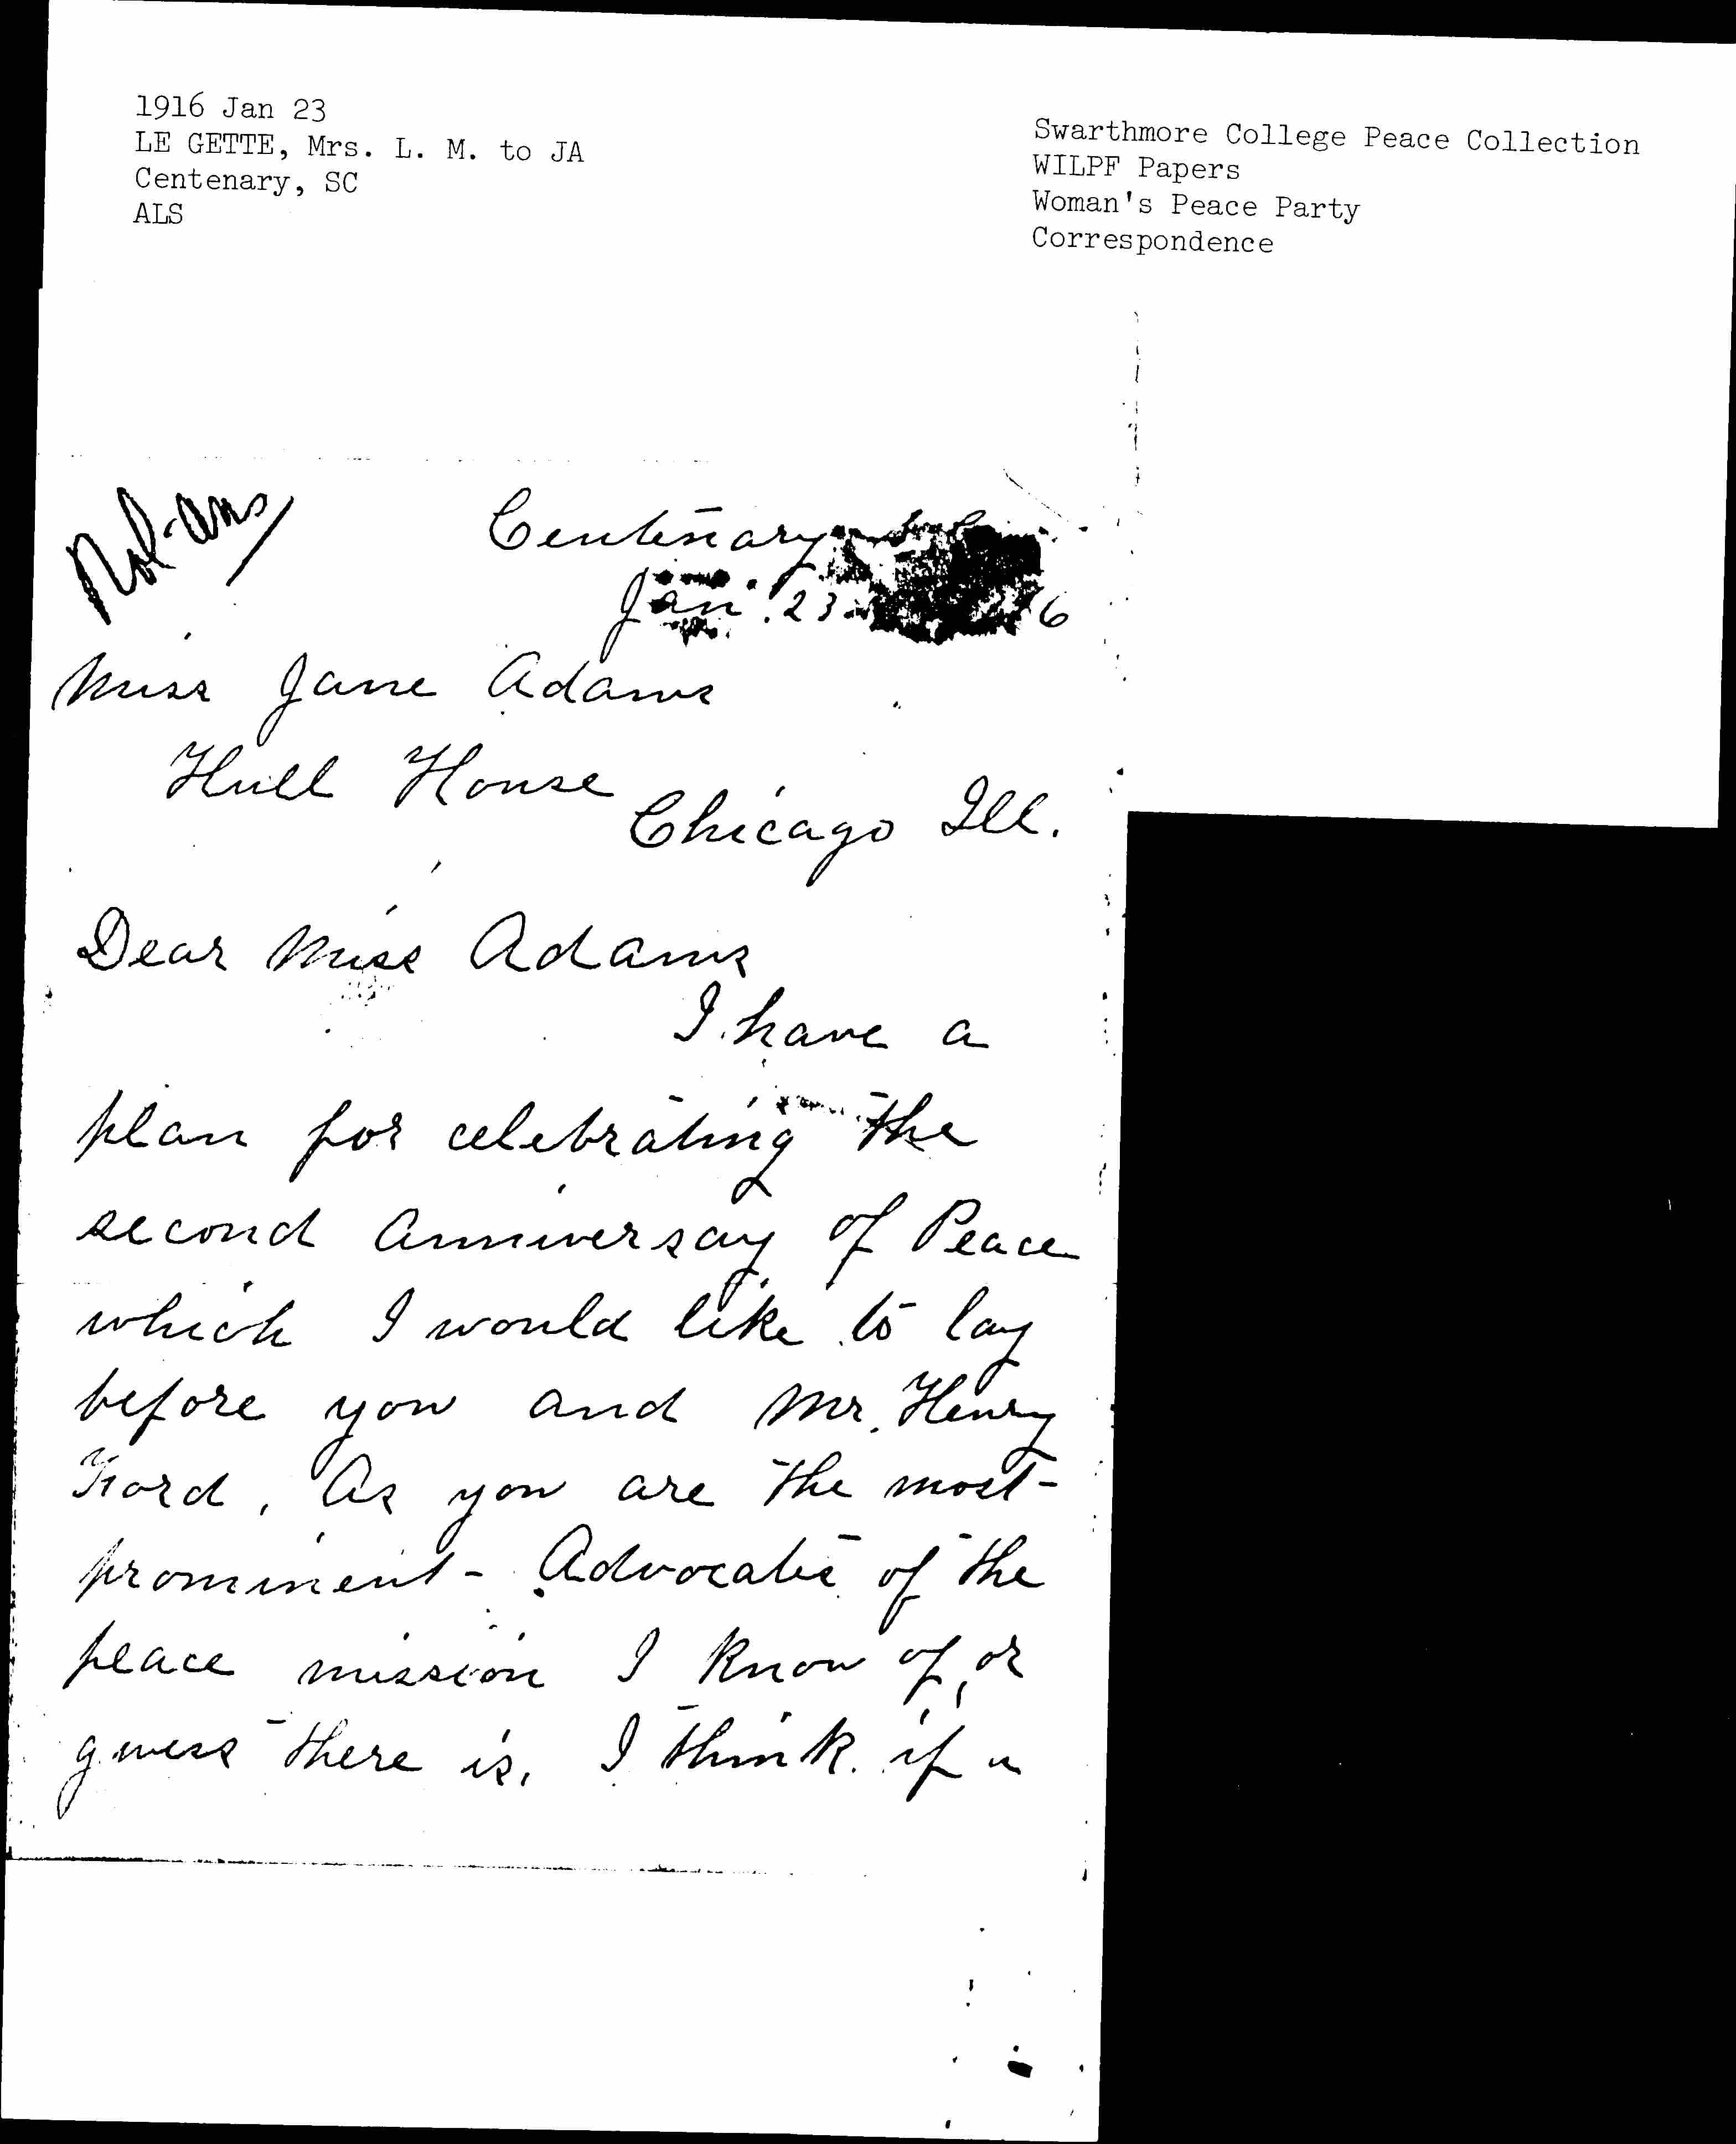 1916 Jan 23
LE GETTE, Mrs. L. M. to JA
Centenary, SC
ALS
Swarthmore College Peace Collection
WILPF Papers
Woman's Peace Party
Correspondence
Centenary
Jan. 23 6
Miss Jane Adams
Hull House
Chicago Ill.
Dear Miss Adams
I have a
plan for celebrating the
second Anniversay of Peace
which I would like to lay
before you and Mr. Henry
Ford. As you are the most
prominent Advocates of the
peace mission I know of, or
guess there is, I think if